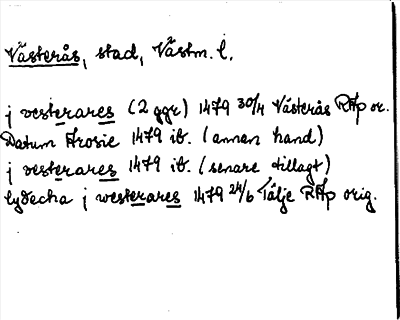 Västerås, stad, Västm. l.
j vesterares (2 ggr) 1479 30/4 Västerås RAp or.
Datum Arosie 1479 ib. (annan hand)
j vesterares 1479 ib. (senare tillagt)
lydecha j westerares 1479 24/6 Tälje RAp orig.